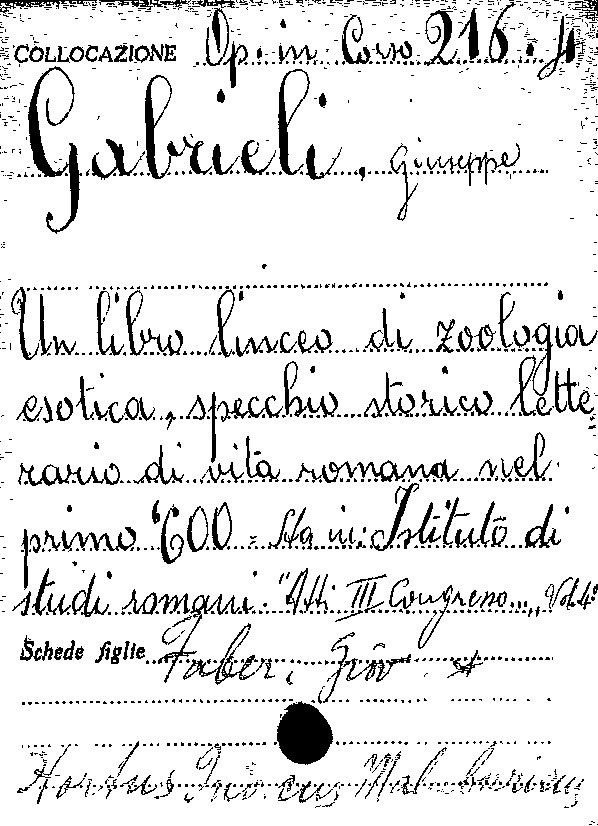 COLLOCAZIONE Op. in Corso 216. 4
Gabrieli, Giuseppe
Un libro linceo di zoologia
esotica, specchio storico lette
rario di vita romana nel
primo '600 = Sta in: Istituto di
studi romani. "Atti III Congresso..." Vol. 4°
Schede figlie Faber, Giov. *
Hortus Malabaricus